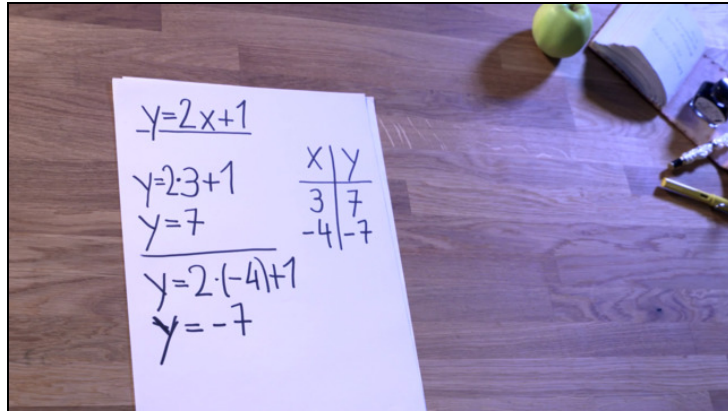 y=2x+1
y=2·3+1
y=7
y=2·(-4)+1
y=-7
x|y
3|7
-4|-7